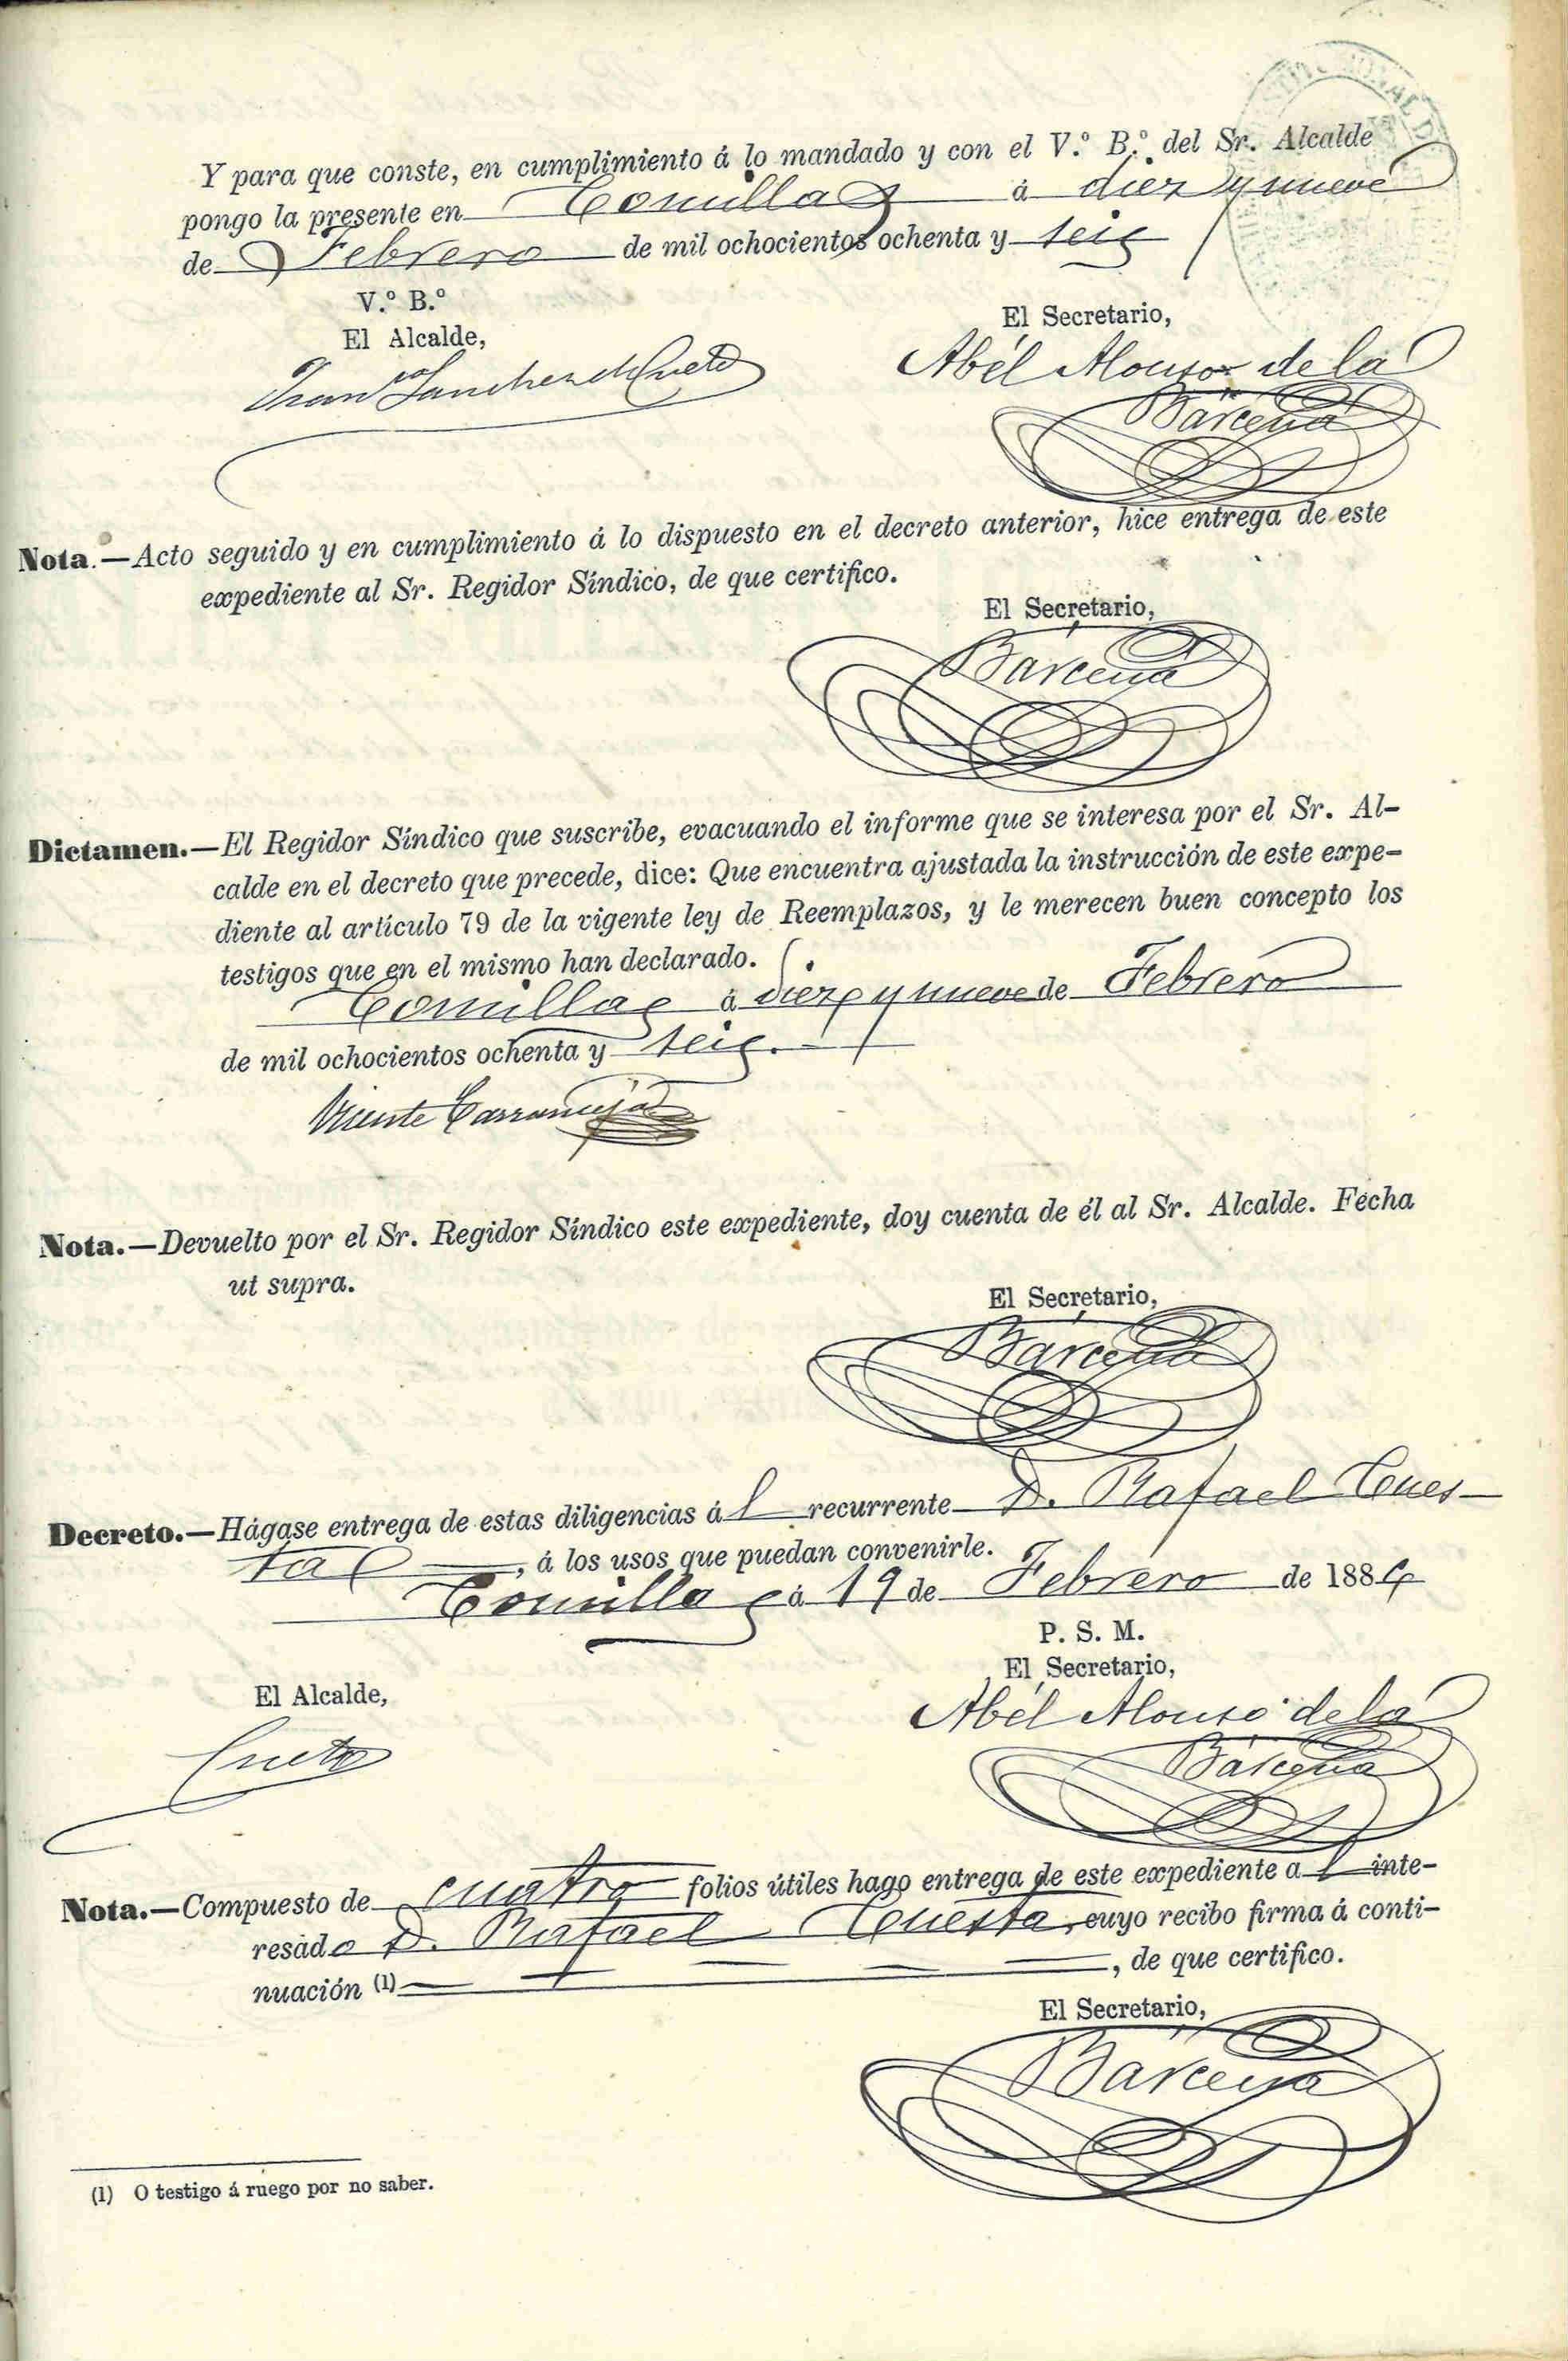 Y para que conste, en cumplimiento á lo mandado y con el V.º B.º del Sr. Alcalde
pongo la presente en Comillas á diez y nueve
de Febrero de mil ochocientos ochenta y seis
V.º B.º
El Alcalde,
El Secretario,
Juan Sanchez de Cueto
Abél Alonso de la
Bárcena
Nota.—Acto seguido y en cumplimiento á lo dispuesto en el decreto anterior, hice entrega de este
expediente al Sr. Regidor Síndico, de que certifico.
El Secretario,
Bárcena
Dictamen.—El Regidor Síndico que suscribe, evacuando el informe que se interesa por el Sr. Al-
calde en el decreto que precede, dice: Que encuentra ajustada la instrucción de este expe-
diente al artículo 79 de la vigente ley de Reemplazos, y le merecen buen concepto los
testigos que en el mismo han declarado.
Comillas á diez y nueve de Febrero
de mil ochocientos ochenta y seis.
Vicente Carranceja
Nota.—Devuelto por el Sr. Regidor Síndico este expediente, doy cuenta de él al Sr. Alcalde. Fecha
ut supra.
El Secretario,
Bárcena
Decreto.—Hágase entrega de estas diligencias á l recurrente D. Rafael Cues-
ta, á los usos que puedan convenirle.
Comillas á 19 de Febrero de 1886
P. S. M.
El Alcalde,
El Secretario,
Cueto
Abél Alonso de la
Bárcena
Nota.—Compuesto de cuatro folios útiles hago entrega de este expediente a l inte-
resado D. Rafael Cuesta, cuyo recibo firma á conti-
nuación (1), de que certifico.
El Secretario,
Bárcena
(1) O testigo á ruego por no saber.